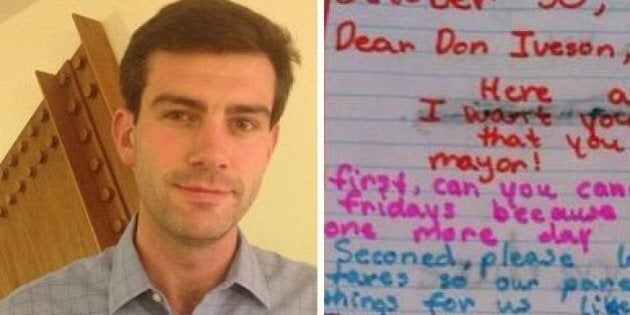 October 30,
Dear Don Iveson,
Here a
I want you
that you
mayor!
first, can you canc
fridays because
one more day
Seconed, please l
taxes so our pare
things for us like